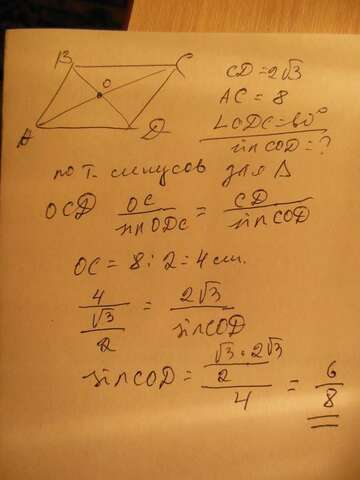 B C
O
A D
CD = 2√3
AC = 8
∠ODC = 60°
sin COD = ?
по т. синусов для Δ
OCD OC/sin ODC = CD/sin COD
OC = 8 : 2 = 4 см.
4/(√3/2) = 2√3/sin COD
sin COD = (√3 · 2√3/2)/4 = 6/8